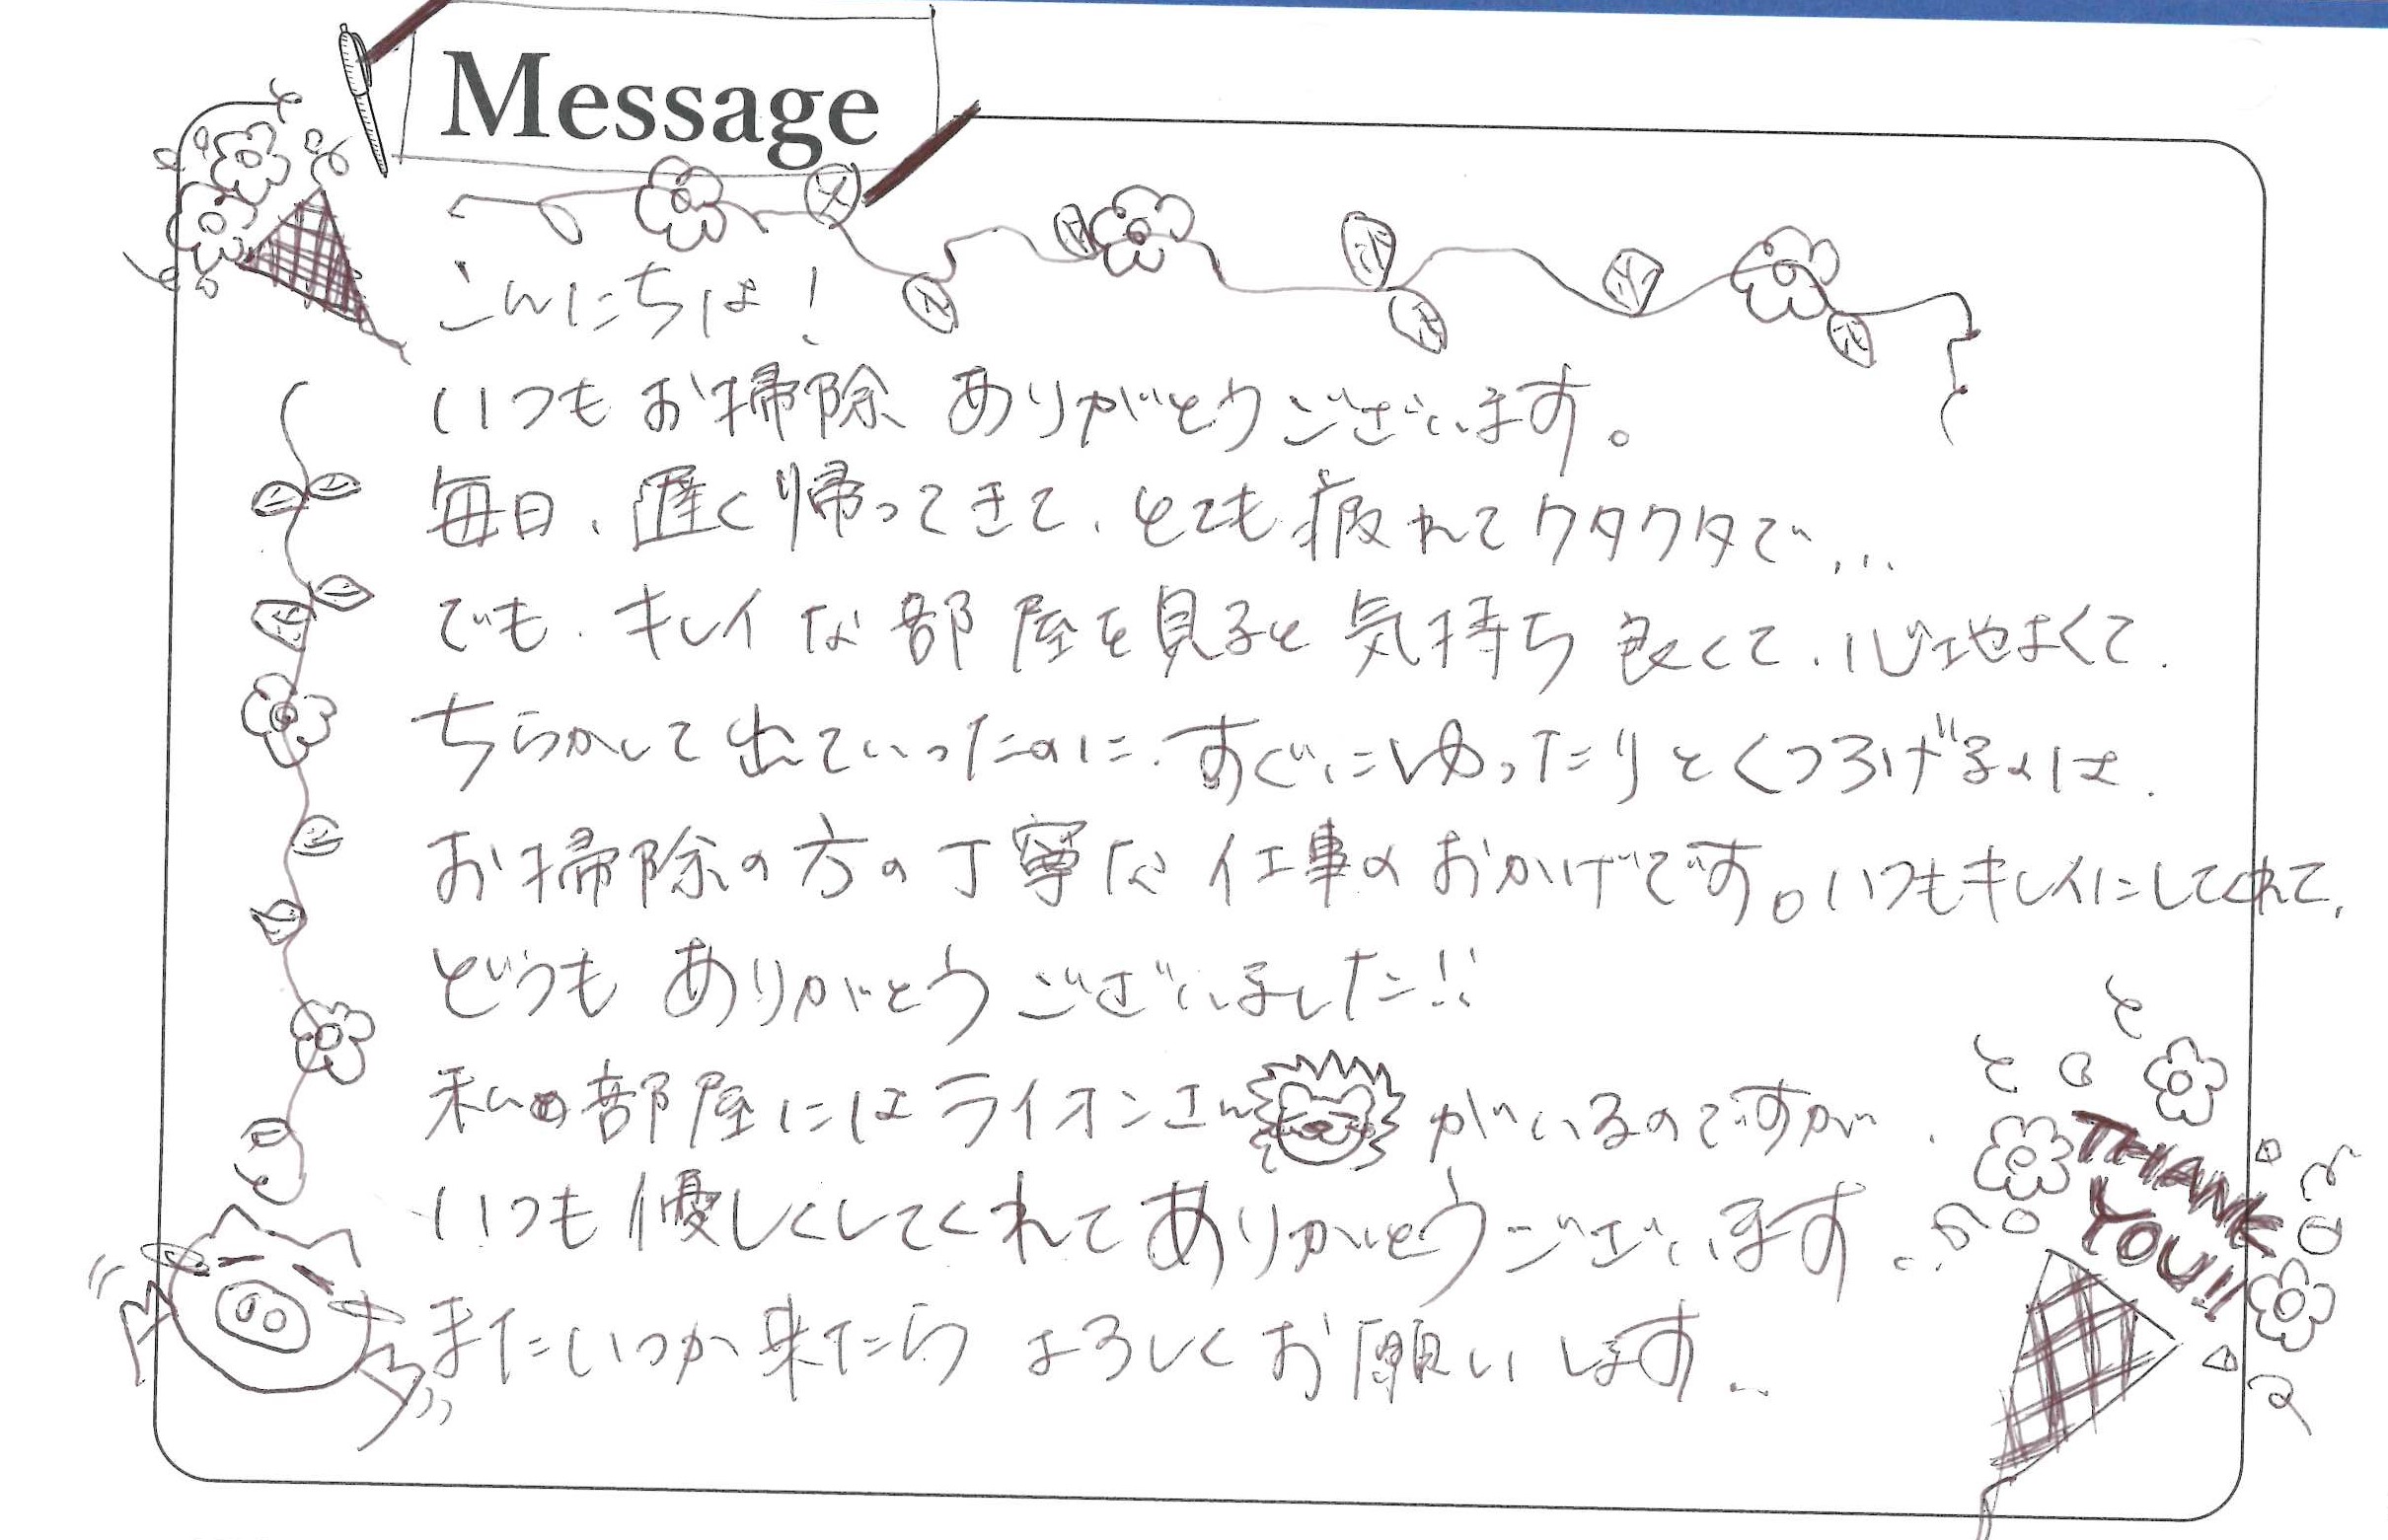 Message
こんにちは!
いつもお掃除 ありがとうございます。
毎日、遅く帰ってきて、とても疲れてクタクタで...
でも、キレイな部屋を見ると気持ち良くて、心地よくて、
ちらかして出ていったのに、すぐにゆったりとくつろげるのは、
お掃除の方の丁寧な仕事のおかげです。いつもキレイにしてくれて、
どうも ありがとう ございました!!
私の部屋にはライオンさんがいるのですが、
いつも優しくしてくれてありがとうございます..
またいつか来たら よろしくお願いします..
THANK
YOU!!